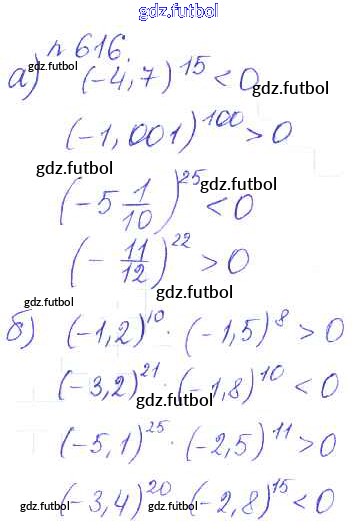 gdz.futbol
№ 616.
gdz.futbol
а) (-4,7)^15 < 0
gdz.futbol
(-1,001)^100 > 0
gdz.futbol
(-5 1/10)^25 < 0
gdz.futbol
(-11/12)^22 > 0
gdz.futbol
gdz.futbol
б) (-1,2)^10 · (-1,5)^8 > 0
gdz.futbol
(-3,2)^21 · (-1,8)^10 < 0
gdz.futbol
(-5,1)^25 · (-2,5)^11 > 0
gdz.futbol
(-3,4)^20 (-2,8)^15 < 0
gdz.futbol gdz.futbol gdz.futbol